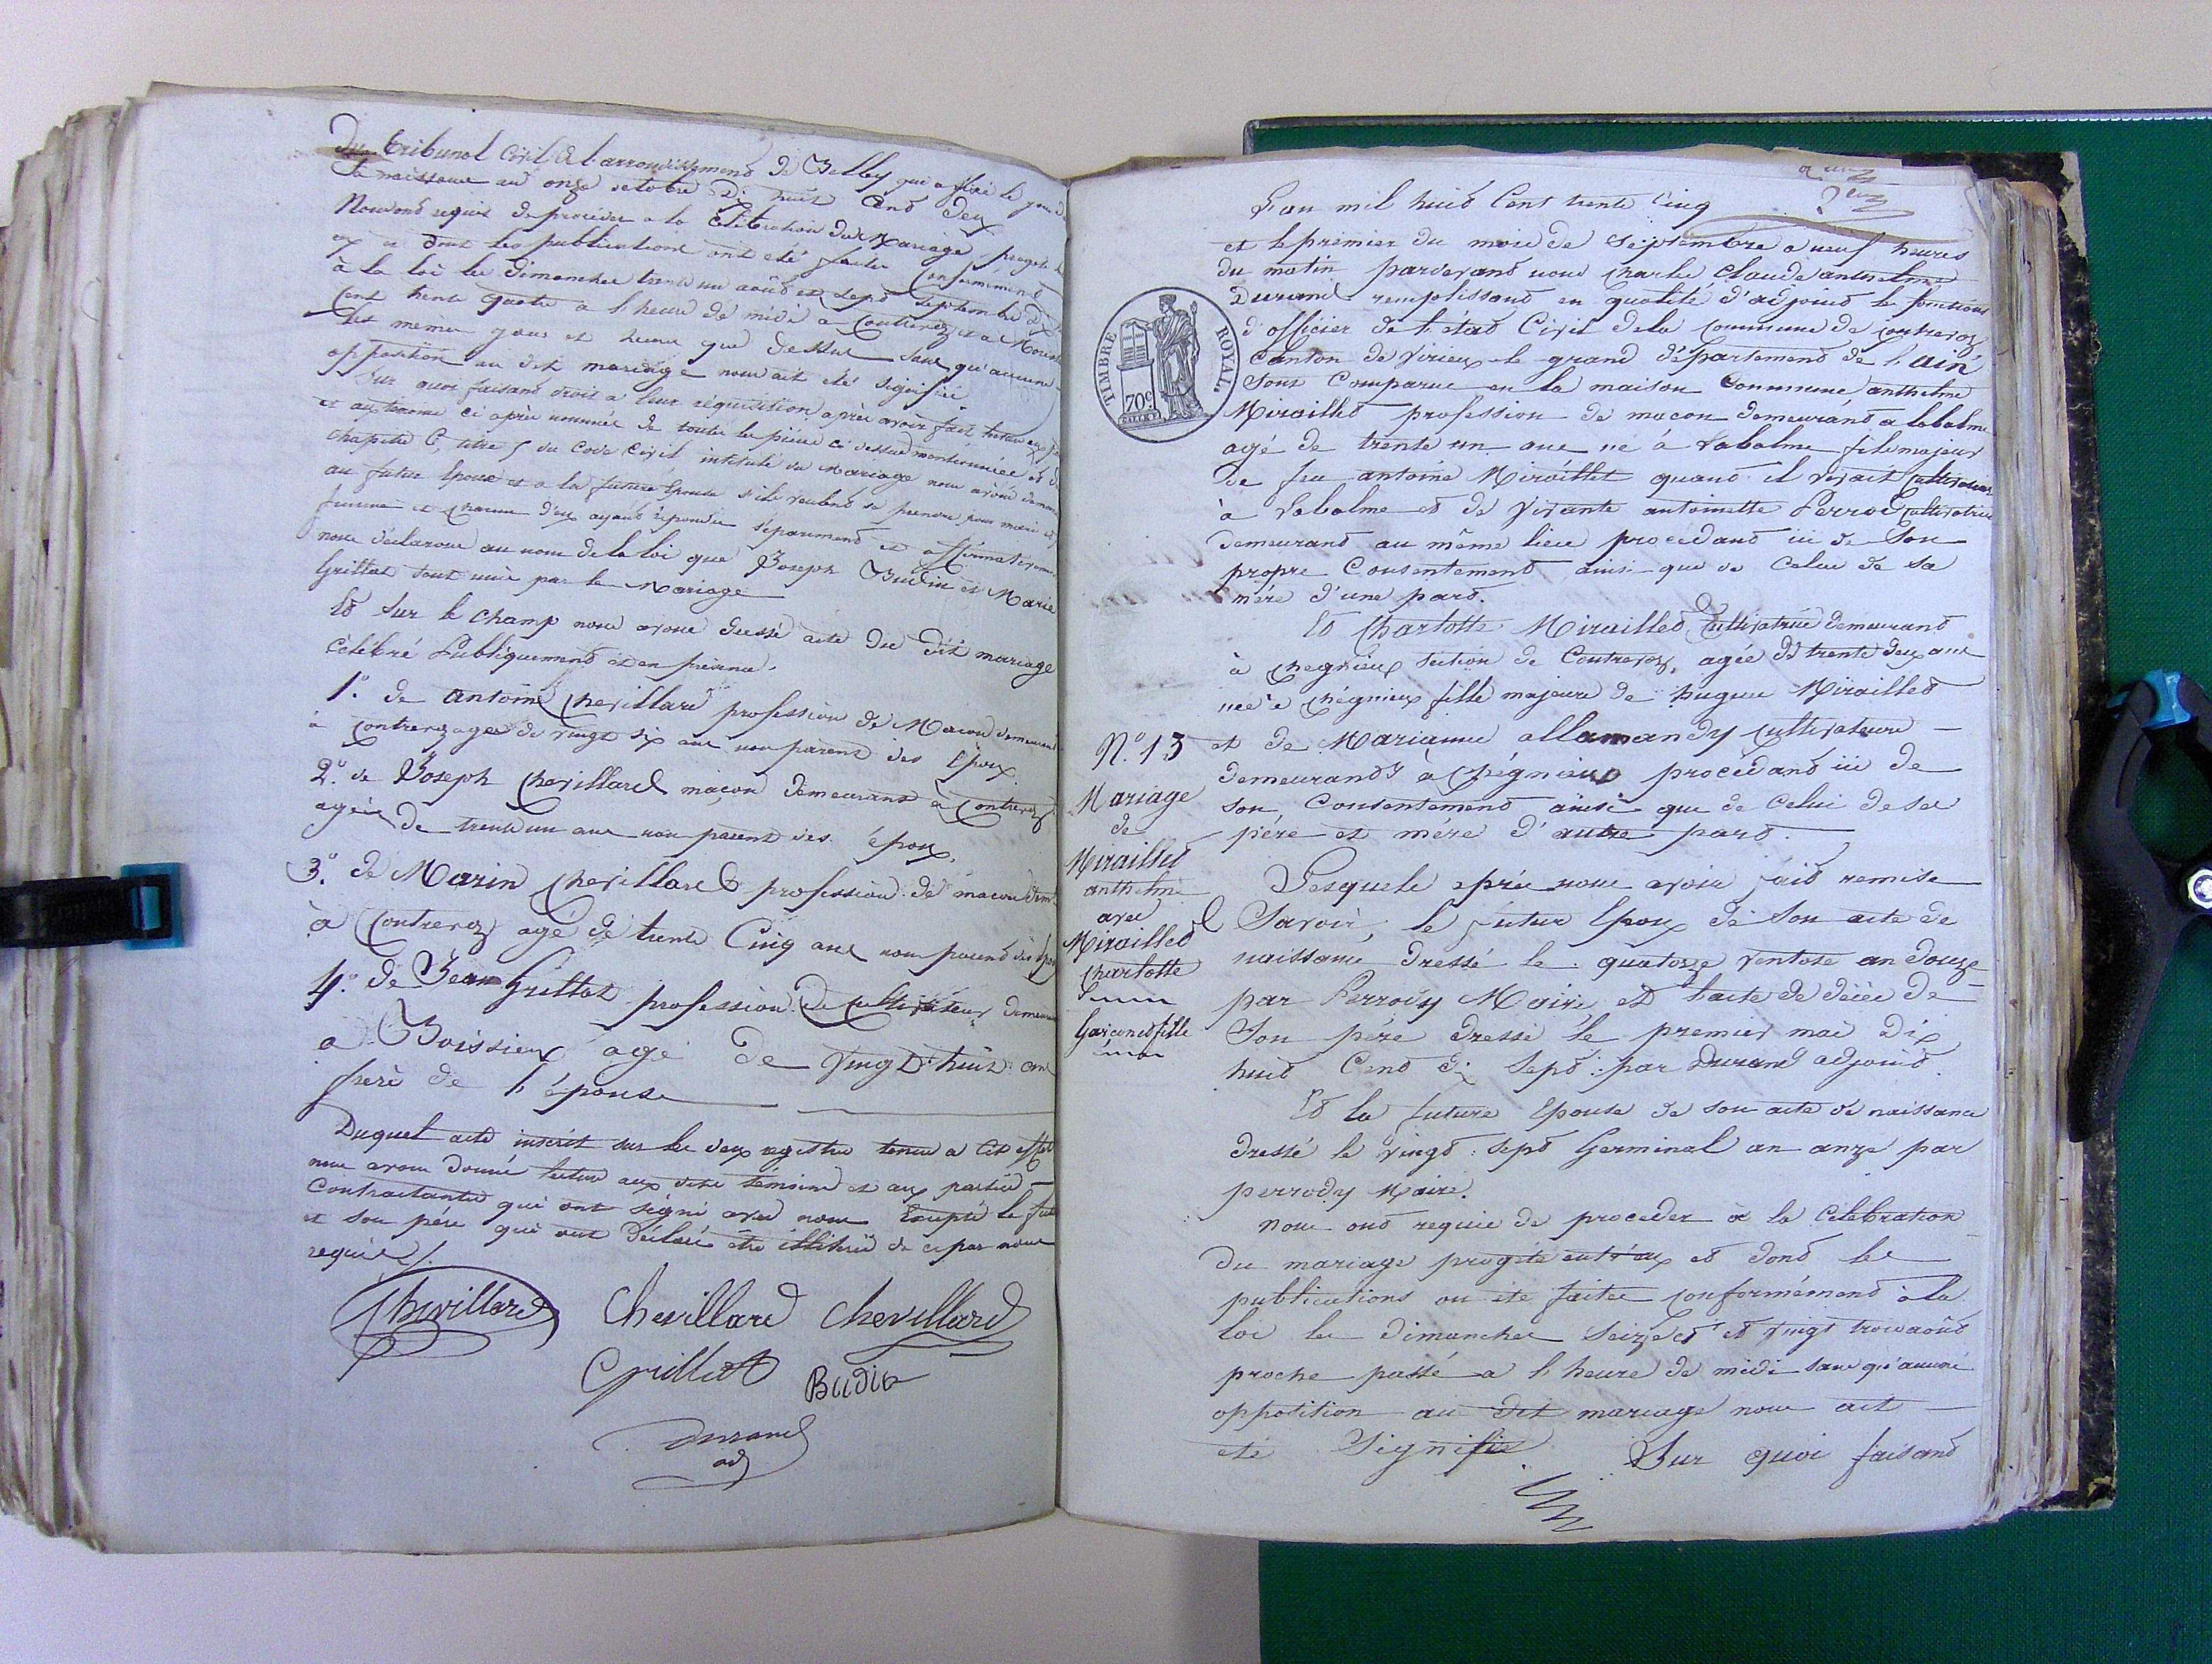 Du tribunal Civil de l'arrondissement de Belley qui a fixé le jour de
sa naissance au onze octobre dix huit Cent deux
Nous ont requis de procéder a la Célébration du Mariage projeté
et dont les publications ont été faites Conformément
à la loi les dimanches trente un août et sept septembre dix
Cent trente quatre à l'heure de midi a Contrevoz et a
les même jour et heure que dessus sans qu'aucune
opposition au dit mariage nous ait été signifiée
Sur quoi faisant droit a leur réquisition après avoir fait lecture aux
et aux témoins ci après nommés de toutes les pièces ci dessus mentionnées et du
chapitre 6, titre 5 du Code Civil intitulé du Mariage nous avons demandé
au futur époux et a la future Epouse s'ils veulent se prendre pour mari et
femme et chacun d'eux ayant répondu séparément et affirmativement
nous déclarons au nom de la loi que Joseph Budin et Marie
Grillat sont unis par le Mariage
Et sur le champ nous avons dressé acte du dit mariage
Célébré Publiquement et en présence
1.° de antoine Chevillard profession de Macon demeurant
à Contrevoz agé de vingt six ans non parent des Epoux
2.° de Joseph Chevillard maçon demeurant à Contrevoz
agée de trente un ans non parent des époux,
3.° de Marin Chevillard profession de macon demt
à Contrevoz agé de trente Cinq ans non parent des Epoux
4.° de Jean Grillat profession de Cultivateur demeurant
a Boissieu agé de vingt huit ans
frere de l'épouse
Duquel acte inscrit sur les deux registres tenus a Cet effet
nous avons donné lecture aux dits témoins et aux parties
Contractantes qui ont signé avec nous Excepté le futur
et son père qui ont déclaré être illitérés de ce par nous
requis /.
Chevillard Chevillard Chevillard
Grillat Budin
Durand
adj
L'an mil huit Cent trente Cinq
et le premier du mois de septembre a neuf heures
du matin pardevant nous Charles Claude anthelme
Durand remplissant en qualité d'adjoint les fonctions
d'officier de l'état Civil de la Commune de Contrevoz
Canton de Virieux le grand département de l'ain
TIMBRE ROYAL.
70c
Sont Comparus en la maison Commune anthelme
Miraillet profession de macon demeurant a labalme
agé de trente un ans né à Labalme fils majeur
de feu antoine Miraillet quand il vivait Cultivateur
à Labalme et de vivante antoinette Perrod Cultivatrice
demeurant au même lieu procédant ici de Son
propre Consentement ainsi que de Celui de sa
mère d'une part.
Et Charlotte Miraillet Cultivatrice demeurant
à Chegnieux section de Contrevoz, agée de trente deux ans
née à Chégnieux fille majeure de hugues Miraillet
N.° 13
et de Marianne allamandy Cultivateurs
demeurants à Chégnieux procédant ici de
son Consentement ainsi que de Celui de ses
père et mère d'autre part.
Mariage
de
Miraillet
anthelme
avec
Miraillet
Charlotte
Garçon et fille
Lesquels après nous avoir fait remise
Savoir, le futur Epoux de Son acte de
naissance dressé le quatorze ventose an douze
par Perrody Maire, et l'acte de décès de
Son père dressé le premier mai dix
huit Cent dix sept par Durand adjoint.
Et la future Epouse de son acte de naissance
dressé le vingt sept Germinal an onze par
perrody Maire.
nous ont requis de proceder à la Célébration
du mariage progété entr'eux et dont les
publications on été faites conformément à la
loi les dimanches seize et vingt trois août
proche passé a l'heure de midi sans qu'aucune
opposition au dit mariage nous ait
été Signifiée. Sur quoi faisant